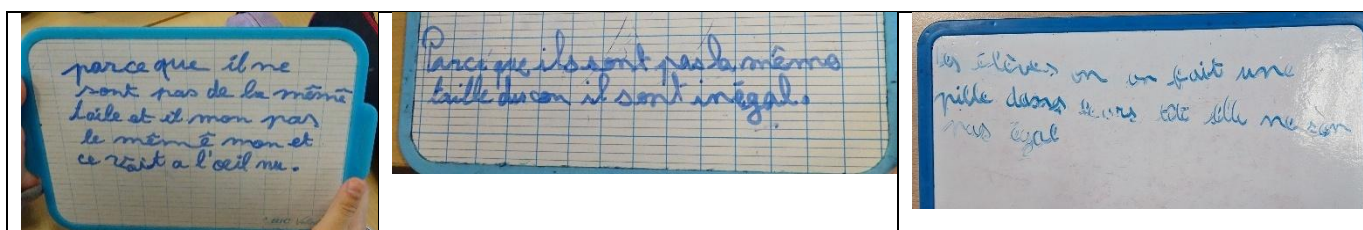 parce que il ne
sont pas de la même
taile et il mon pas
le même ê mon et
ce vait a l'oeil nu.
Parce que ils sont pas la même
taille du con il sont inégal.
les élèves on on fait une
pille dans leurs elle ne son
pas égal